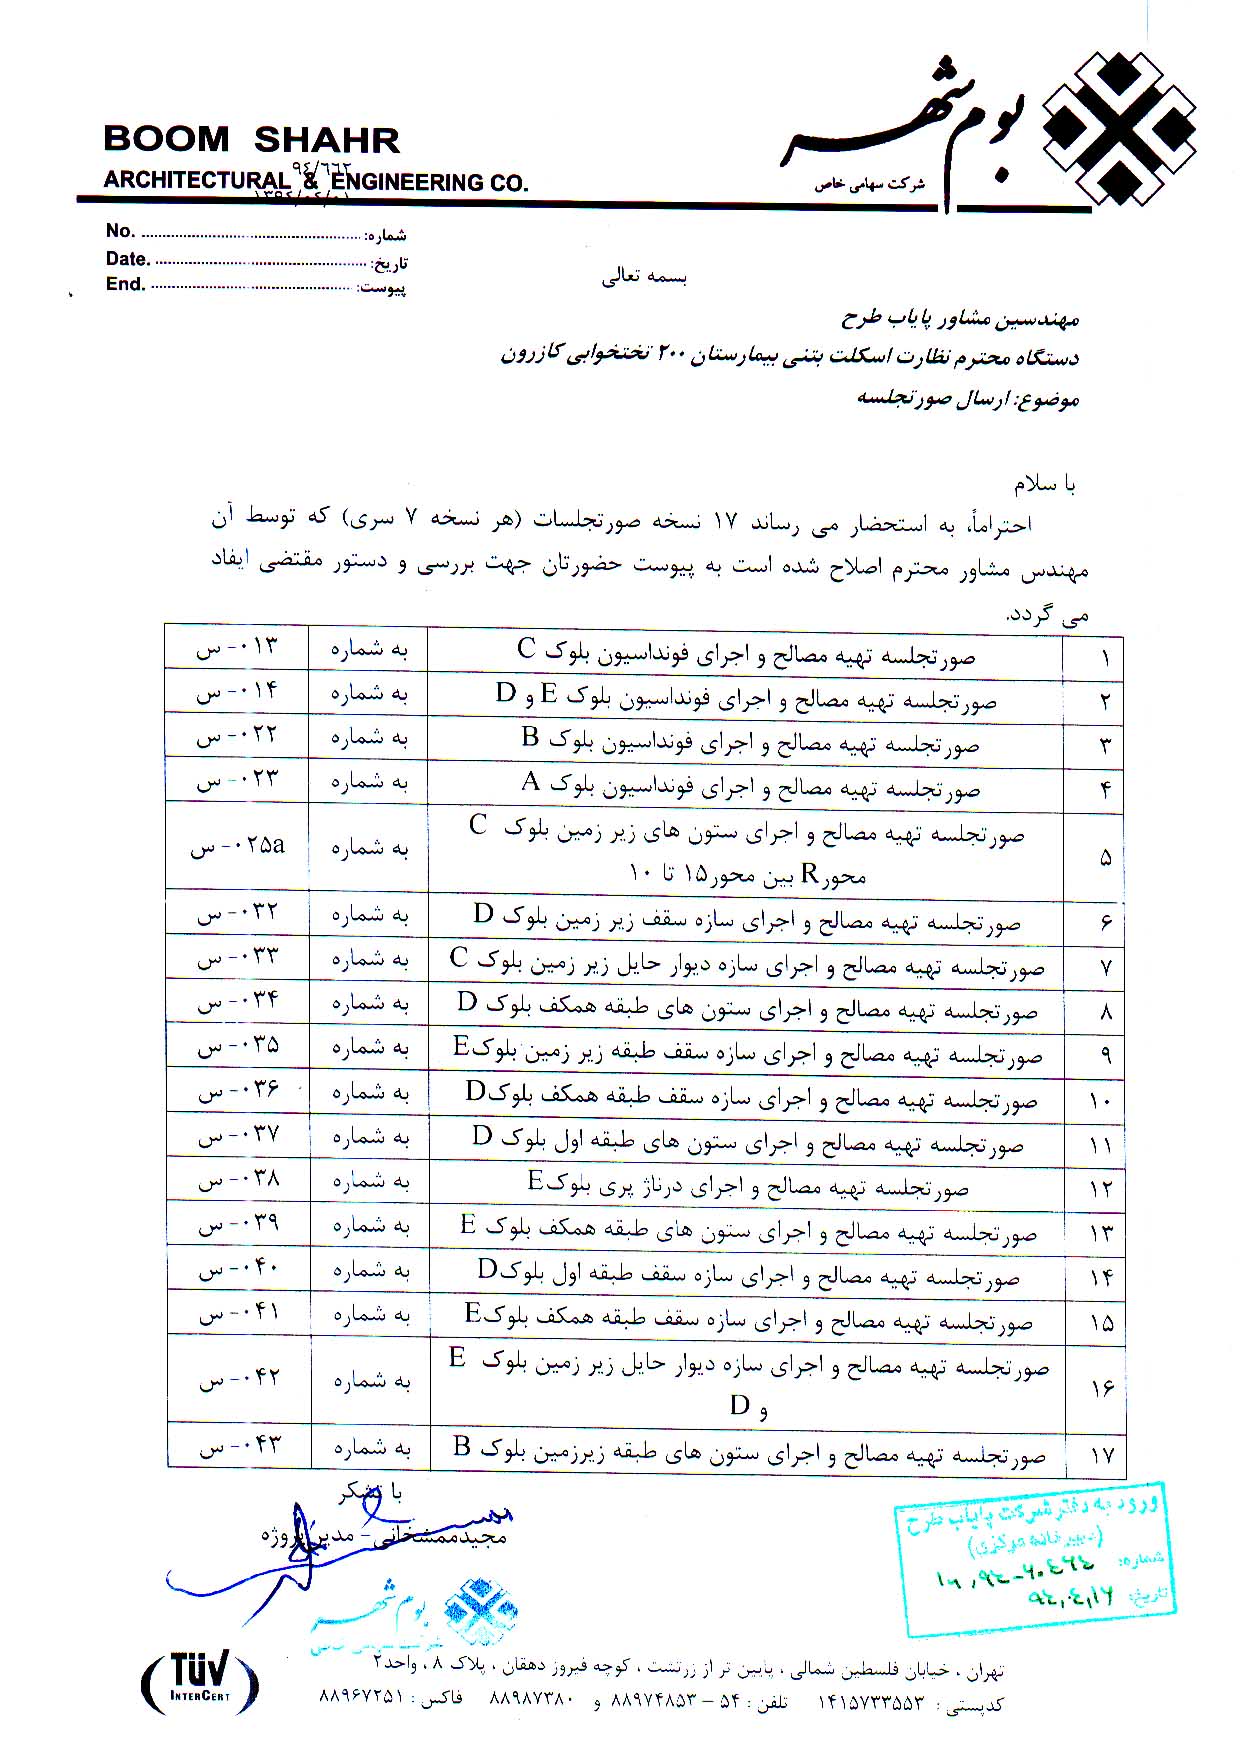 بوم شهر
شرکت سهامی خاص
BOOM SHAHR
ARCHITECTURAL & ENGINEERING CO.
۹۴/۶۶۲
No. شماره:
Date. تاریخ:
End. پیوست:
بسمه تعالی
مهندسین مشاور پایاب طرح
دستگاه محترم نظارت اسکلت بتنی بیمارستان ۲۰۰ تختخوابی کازرون
موضوع: ارسال صورتجلسه
با سلام
احتراماً، به استحضار می رساند ۱۷ نسخه صورتجلسات (هر نسخه ۷ سری) که توسط آن
مهندس مشاور محترم اصلاح شده است به پیوست حضورتان جهت بررسی و دستور مقتضی ایفاد
می گردد.
۱ صورتجلسه تهیه مصالح و اجرای فونداسیون بلوک C به شماره ۰۱۳- س
۲ صورتجلسه تهیه مصالح و اجرای فونداسیون بلوک E و D به شماره ۰۱۴- س
۳ صورتجلسه تهیه مصالح و اجرای فونداسیون بلوک B به شماره ۰۲۲- س
۴ صورتجلسه تهیه مصالح و اجرای فونداسیون بلوک A به شماره ۰۲۳- س
۵ صورتجلسه تهیه مصالح و اجرای ستون های زیر زمین بلوک C
محورR بین محور۱۵ تا ۱۰ به شماره ۰۲۵a- س
۶ صورتجلسه تهیه مصالح و اجرای سازه سقف زیر زمین بلوک D به شماره ۰۳۲- س
۷ صورتجلسه تهیه مصالح و اجرای سازه دیوار حایل زیر زمین بلوک C به شماره ۰۳۳- س
۸ صورتجلسه تهیه مصالح و اجرای ستون های طبقه همکف بلوک D به شماره ۰۳۴- س
۹ صورتجلسه تهیه مصالح و اجرای سازه سقف طبقه زیر زمین بلوکE به شماره ۰۳۵- س
۱۰ صورتجلسه تهیه مصالح و اجرای سازه سقف طبقه همکف بلوکD به شماره ۰۳۶- س
۱۱ صورتجلسه تهیه مصالح و اجرای ستون های طبقه اول بلوک D به شماره ۰۳۷- س
۱۲ صورتجلسه تهیه مصالح و اجرای درناژ پری بلوکE به شماره ۰۳۸- س
۱۳ صورتجلسه تهیه مصالح و اجرای ستون های طبقه همکف بلوک E به شماره ۰۳۹- س
۱۴ صورتجلسه تهیه مصالح و اجرای سازه سقف طبقه اول بلوکD به شماره ۰۴۰- س
۱۵ صورتجلسه تهیه مصالح و اجرای سازه سقف طبقه همکف بلوکE به شماره ۰۴۱- س
۱۶ صورتجلسه تهیه مصالح و اجرای سازه دیوار حایل زیر زمین بلوک E
و D به شماره ۰۴۲- س
۱۷ صورتجلسه تهیه مصالح و اجرای ستون های طبقه زیرزمین بلوک B به شماره ۰۴۳- س
با تشکر
مجیدممشخانی- مدیر پروژه
بوم شهر
ورود به دفتر شرکت پایاب طرح
(دبیرخانه مرکزی)
شماره:
تاریخ:
TÜV
INTERCERT
تهران ، خیابان فلسطین شمالی ، پایین تر از زرتشت ، کوچه فیروز دهقان ، پلاک ۸ ، واحد۲
کدپستی : ۱۴۱۵۷۳۳۵۵۳ تلفن : ۵۴ - ۸۸۹۷۴۸۵۳ و ۸۸۹۸۷۳۸۰ فاکس : ۸۸۹۶۷۲۵۱